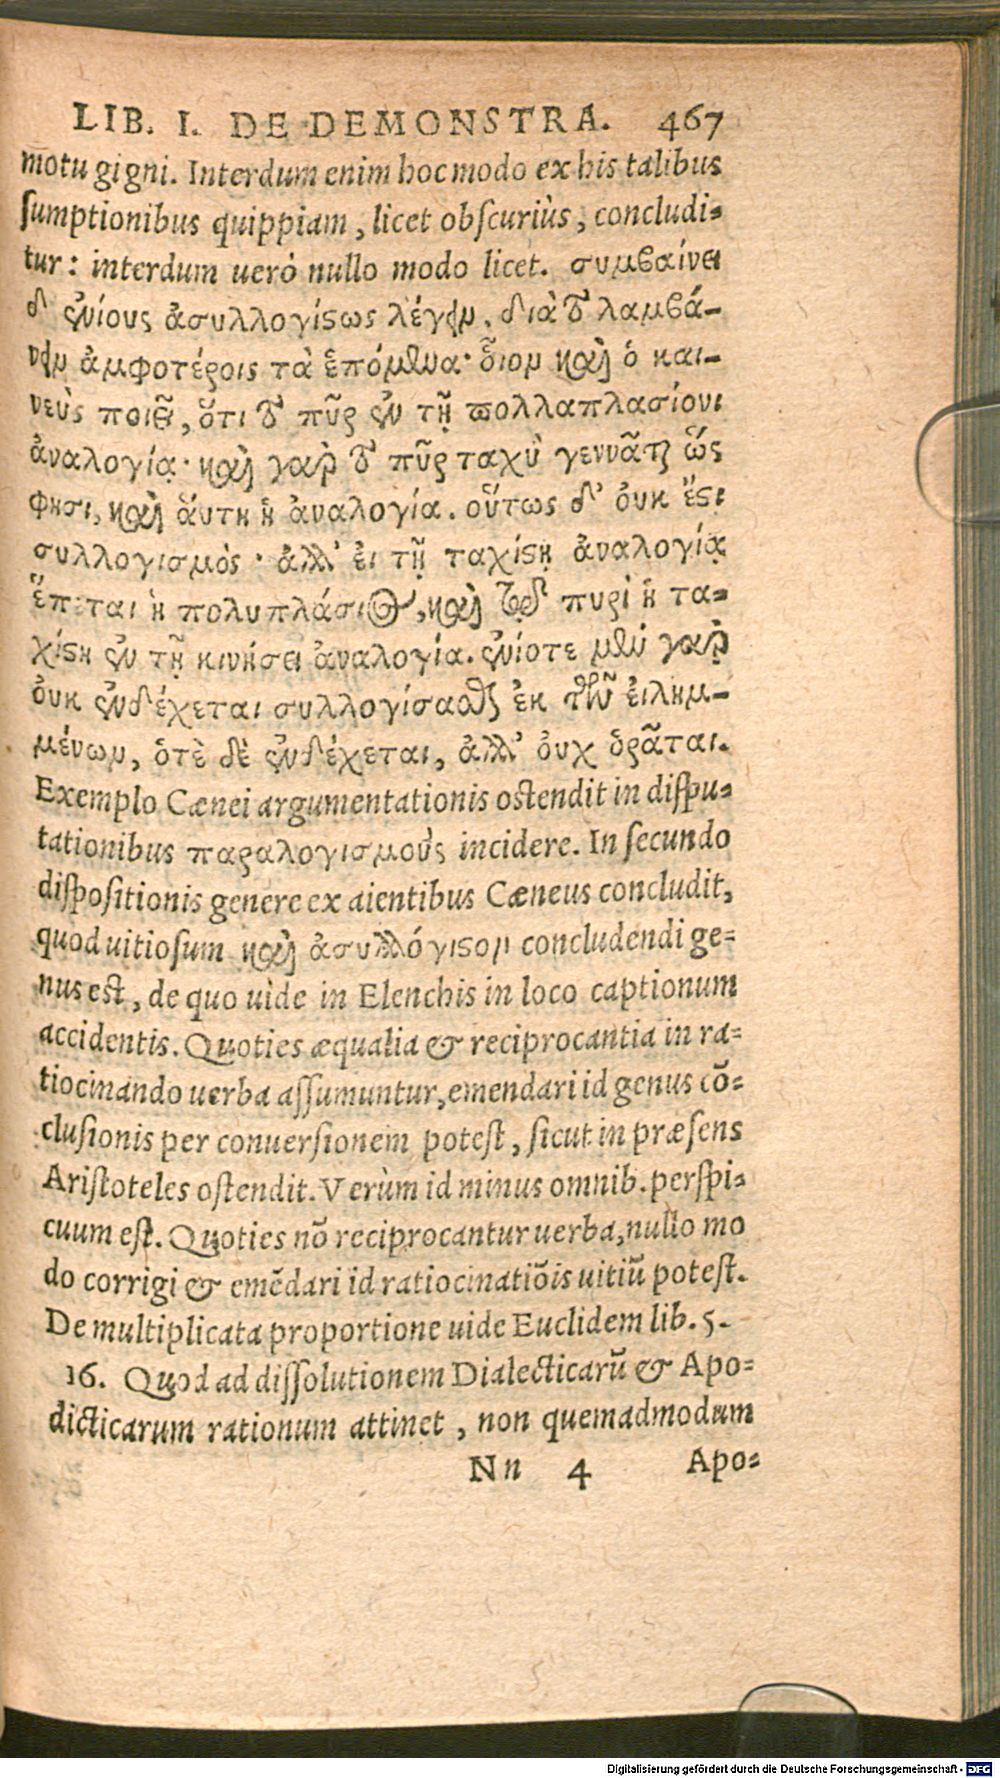 LIB. I. DE DEMONSTRA. 467
motu gigni. Interdum enim hoc modo ex his talibus
sumptionibus quippiam, licet obscuriùs, concludi-
tur: interdum uerò nullo modo licet. συμβαίνει
δ' ἐνίους ἀσυλλογίστως λέγειν, διὰ τὸ λαμβά-
νειν ἀμφοτέροις τὰ ἑπόμενα· οἷον καὶ ὁ και-
νεὺς ποιεῖ, ὅτι τὸ πῦρ ἐν τῇ πολλαπλασίονι
ἀναλογίᾳ· καὶ γαρ τὸ πῦρ ταχὺ γεννᾶται ὥς
φησι, καὶ αὕτη ἡ ἀναλογία. οὕτως δ' οὐκ ἔστι
συλλογισμὸς· ἀλλ' εἰ τῇ ταχίστῃ ἀναλογίᾳ
ἕπεται ἡ πολυπλάσιος, καὶ τῷ πυρὶ ἡ τα-
χίστη ἐν τῇ κινήσει ἀναλογία. ἐνίοτε μὲν γαρ
οὐκ ἐνδέχεται συλλογίσασθαι ἐκ τῶν εἰλημ-
μένων, ὁτὲ δὲ ἐνδέχεται, ἀλλ' οὐχ ὁρᾶται.
Exemplo Cænei argumentationis ostendit in dispu-
tationibus παραλογισμοὺς incidere. In secundo
dispositionis genere ex aientibus Cæneus concludit,
quod uitiosum καὶ ἀσυλλόγιστον concludendi ge-
nus est, de quo uide in Elenchis in loco captionum
accidentis. Quoties æqualia & reciprocantia in ra-
tiocinando uerba assumuntur, emendari id genus cō-
clusionis per conuersionem potest, sicut in præsens
Aristoteles ostendit. Verùm id minus omnib. perspi-
cuum est. Quoties nō reciprocantur uerba, nullo mo
do corrigi & emēdari id ratiocinatiōis uitiū potest.
De multiplicata proportione uide Euclidem lib. 5.
16. Quod ad dissolutionem Dialecticarū & Apo-
dicticarum rationum attinet, non quemadmodum
Nn 4 Apo-
Digitalisierung gefördert durch die Deutsche Forschungsgemeinschaft - DFG